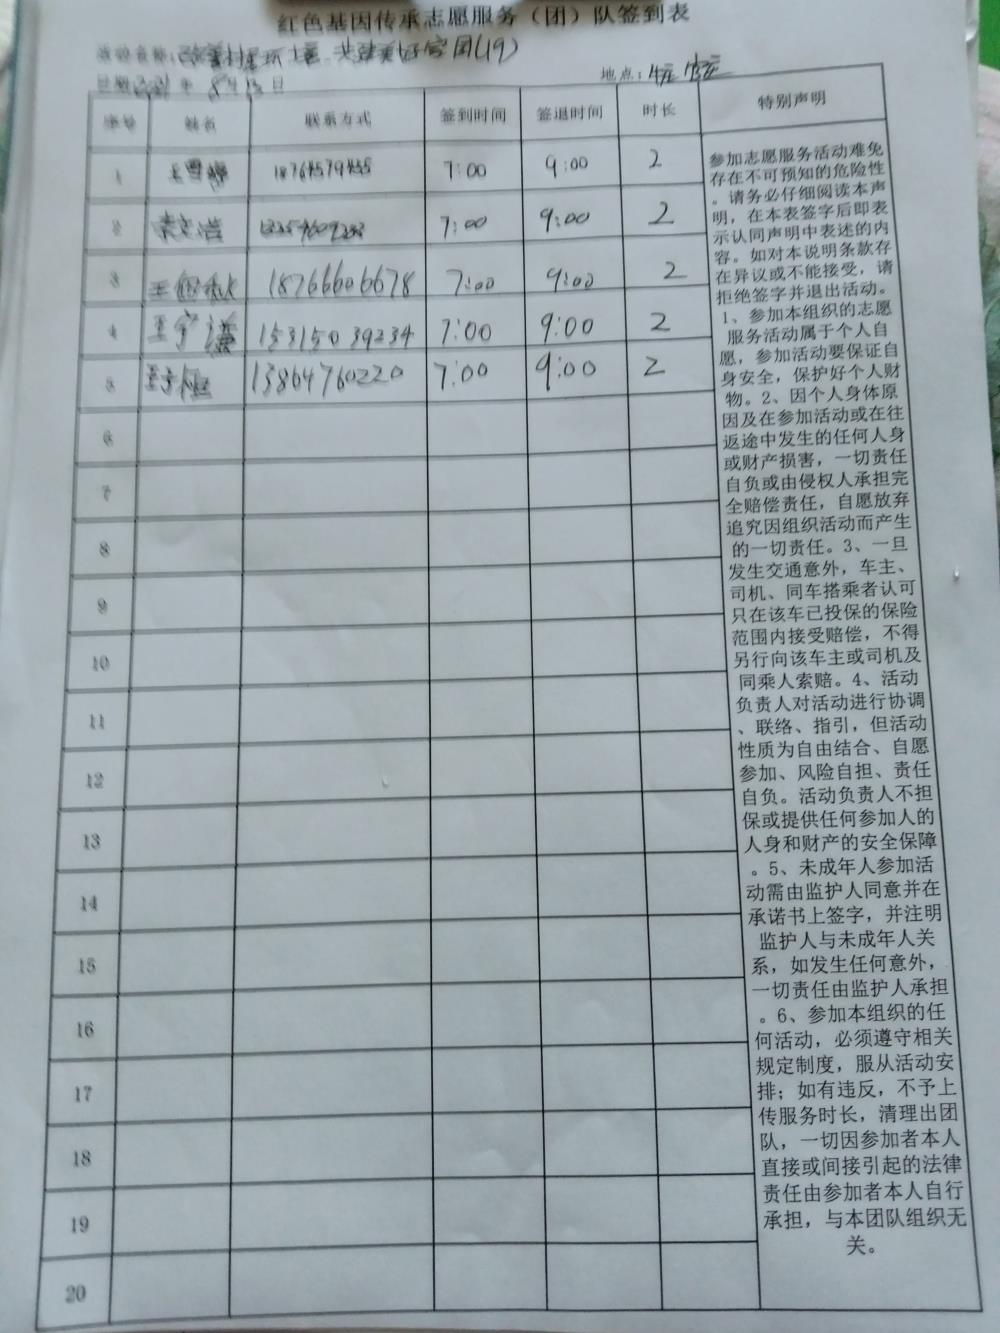 红色基因传承志愿服务(团)队签到表
活动名称:改善村居环境 共建美好家园(19)
日期2021年 8月13日 地点:
序号 姓名 联系方式 签到时间 签退时间 时长 特别声明
1 7:00 9:00 2
2 7:00 9:00 2
3 18766606678 7:00 9:00 2
4 15315039234 7:00 9:00 2
5 13864760220 7:00 9:00 2
6
7
8
9
10
11
12
13
14
15
16
17
18
19
20
参加志愿服务活动难免
存在不可预知的危险性
。请务必仔细阅读本声
明,在本表签字后即表
示认同声明中表述的内
容。如对本说明条款存
在异议或不能接受,请
拒绝签字并退出活动。
1、参加本组织的志愿
服务活动属于个人自
愿,参加活动要保证自
身安全,保护好个人财
物。2、因个人身体原
因及在参加活动或在往
返途中发生的任何人身
或财产损害,一切责任
自负或由侵权人承担完
全赔偿责任,自愿放弃
追究因组织活动而产生
的一切责任。3、一旦
发生交通意外,车主、
司机、同车搭乘者认可
只在该车已投保的保险
范围内接受赔偿,不得
另行向该车主或司机及
同乘人索赔。4、活动
负责人对活动进行协调
、联络、指引,但活动
性质为自由结合、自愿
参加、风险自担、责任
自负。活动负责人不担
保或提供任何参加人的
人身和财产的安全保障
。5、未成年人参加活
动需由监护人同意并在
承诺书上签字,并注明
监护人与未成年人关
系,如发生任何意外,
一切责任由监护人承担
。6、参加本组织的任
何活动,必须遵守相关
规定制度,服从活动安
排;如有违反,不予上
传服务时长,清理出团
队,一切因参加者本人
直接或间接引起的法律
责任由参加者本人自行
承担,与本团队组织无
关。